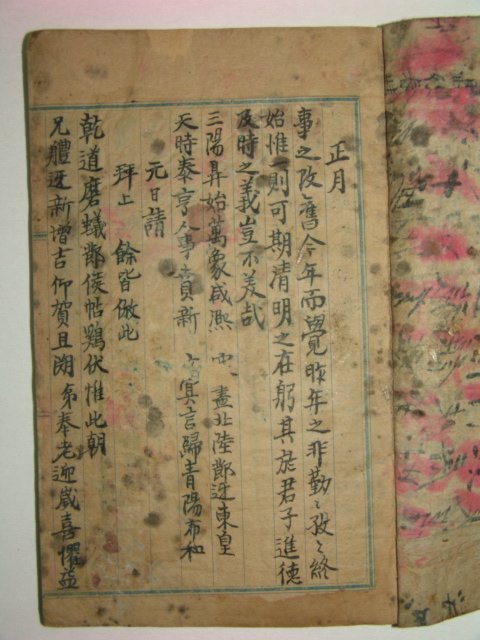 正月
事之改舊今年而覺昨年之非勤〻孜〻終
始惟一則可期清明之在躬其於君子進德
及時之義豈不美哉
三陽昇始萬象咸凞 盡北陸鄒迓東皇
天時泰亨人事責新 玄冥言歸靑陽布和
元日請
拜上 餘皆倣此
乾道磨蟻鄒侯帖鷄伏惟此朝
兄體迓新增吉仰賀且潤弟奉老迎歲喜懼益